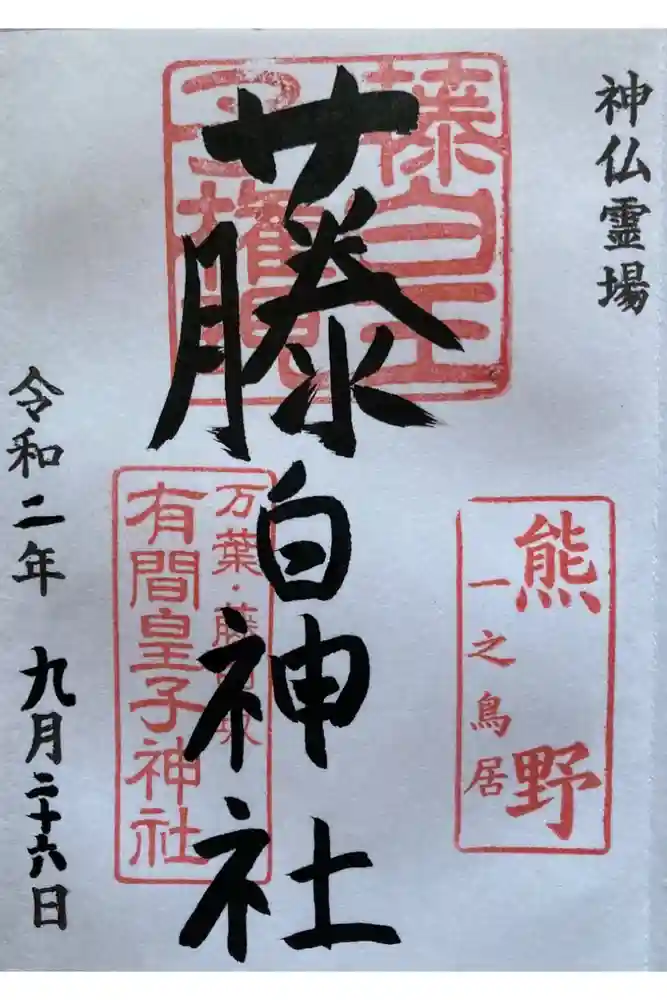 神仏霊場
藤白王
子権現
藤白神社
熊野
一之鳥居
万葉・藤白坂
有間皇子神社
令和二年 九月二十六日